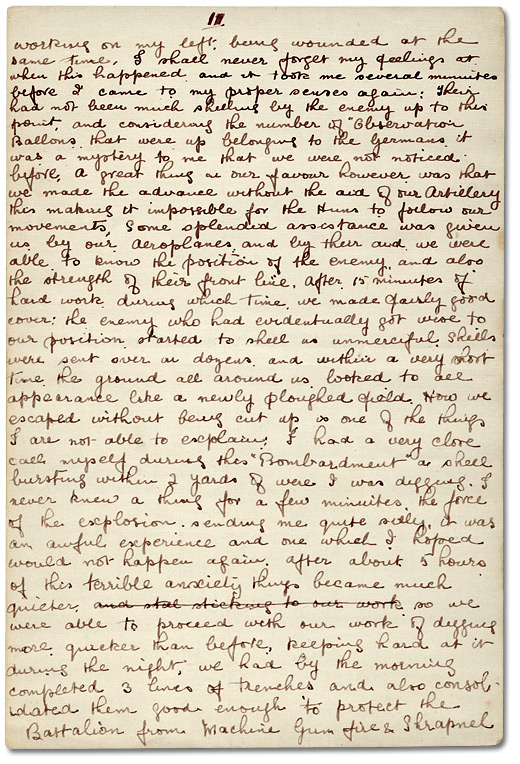 III.
working on my left. being wounded at the
same time. I shall never forget my feelings at
when this happened and it took me several minuites
before I came to my proper senses again: Their
had not been much shelling by the enemy up to this
point, and considering the number of "Observation
Ballons. that were up belonging to the Germans. it
was a mystery to me that we were not noticed
before. A great thing in our favour however was that
we made the advance without the aid of our Artillery
this making it impossible for the Huns to follow our
movements, Some splended assistance was given
us by our Aeroplanes. and by their aid we were
able to know the position of the enemy. and also
the strength of their front line. After 15 minutes of
hard work. during which time we made fairly good
cover: the enemy who had evidentually got wise to
our position started to shell us unmerciful. Shells
were sent over in dozens. and within a very short
time the ground all around us looked to all
appearance like a newly ploughed field. How we
escaped without being cut up is one of the things
I are not able to explain. I had a very close
call myself during this "Bombardment" a shell
bursting within 2 yards of were I was digging. I
never knew a thing for a few minuites. the force
of the explosion. sending me quite silly. it was
an awful experience and one which I hoped
would not happen again. after about 5 hours
of this terrible anxiety things became much
quicter. and stal sticking to our work. so we
were able to proceed with our work of digging
more quicker than before, keeping hard at it
during the night, we had by the morning
completed 3 lines of trenches and also consol-
idated them good enough to protect the
Battalion from Machine Gun fire & Shrapnel